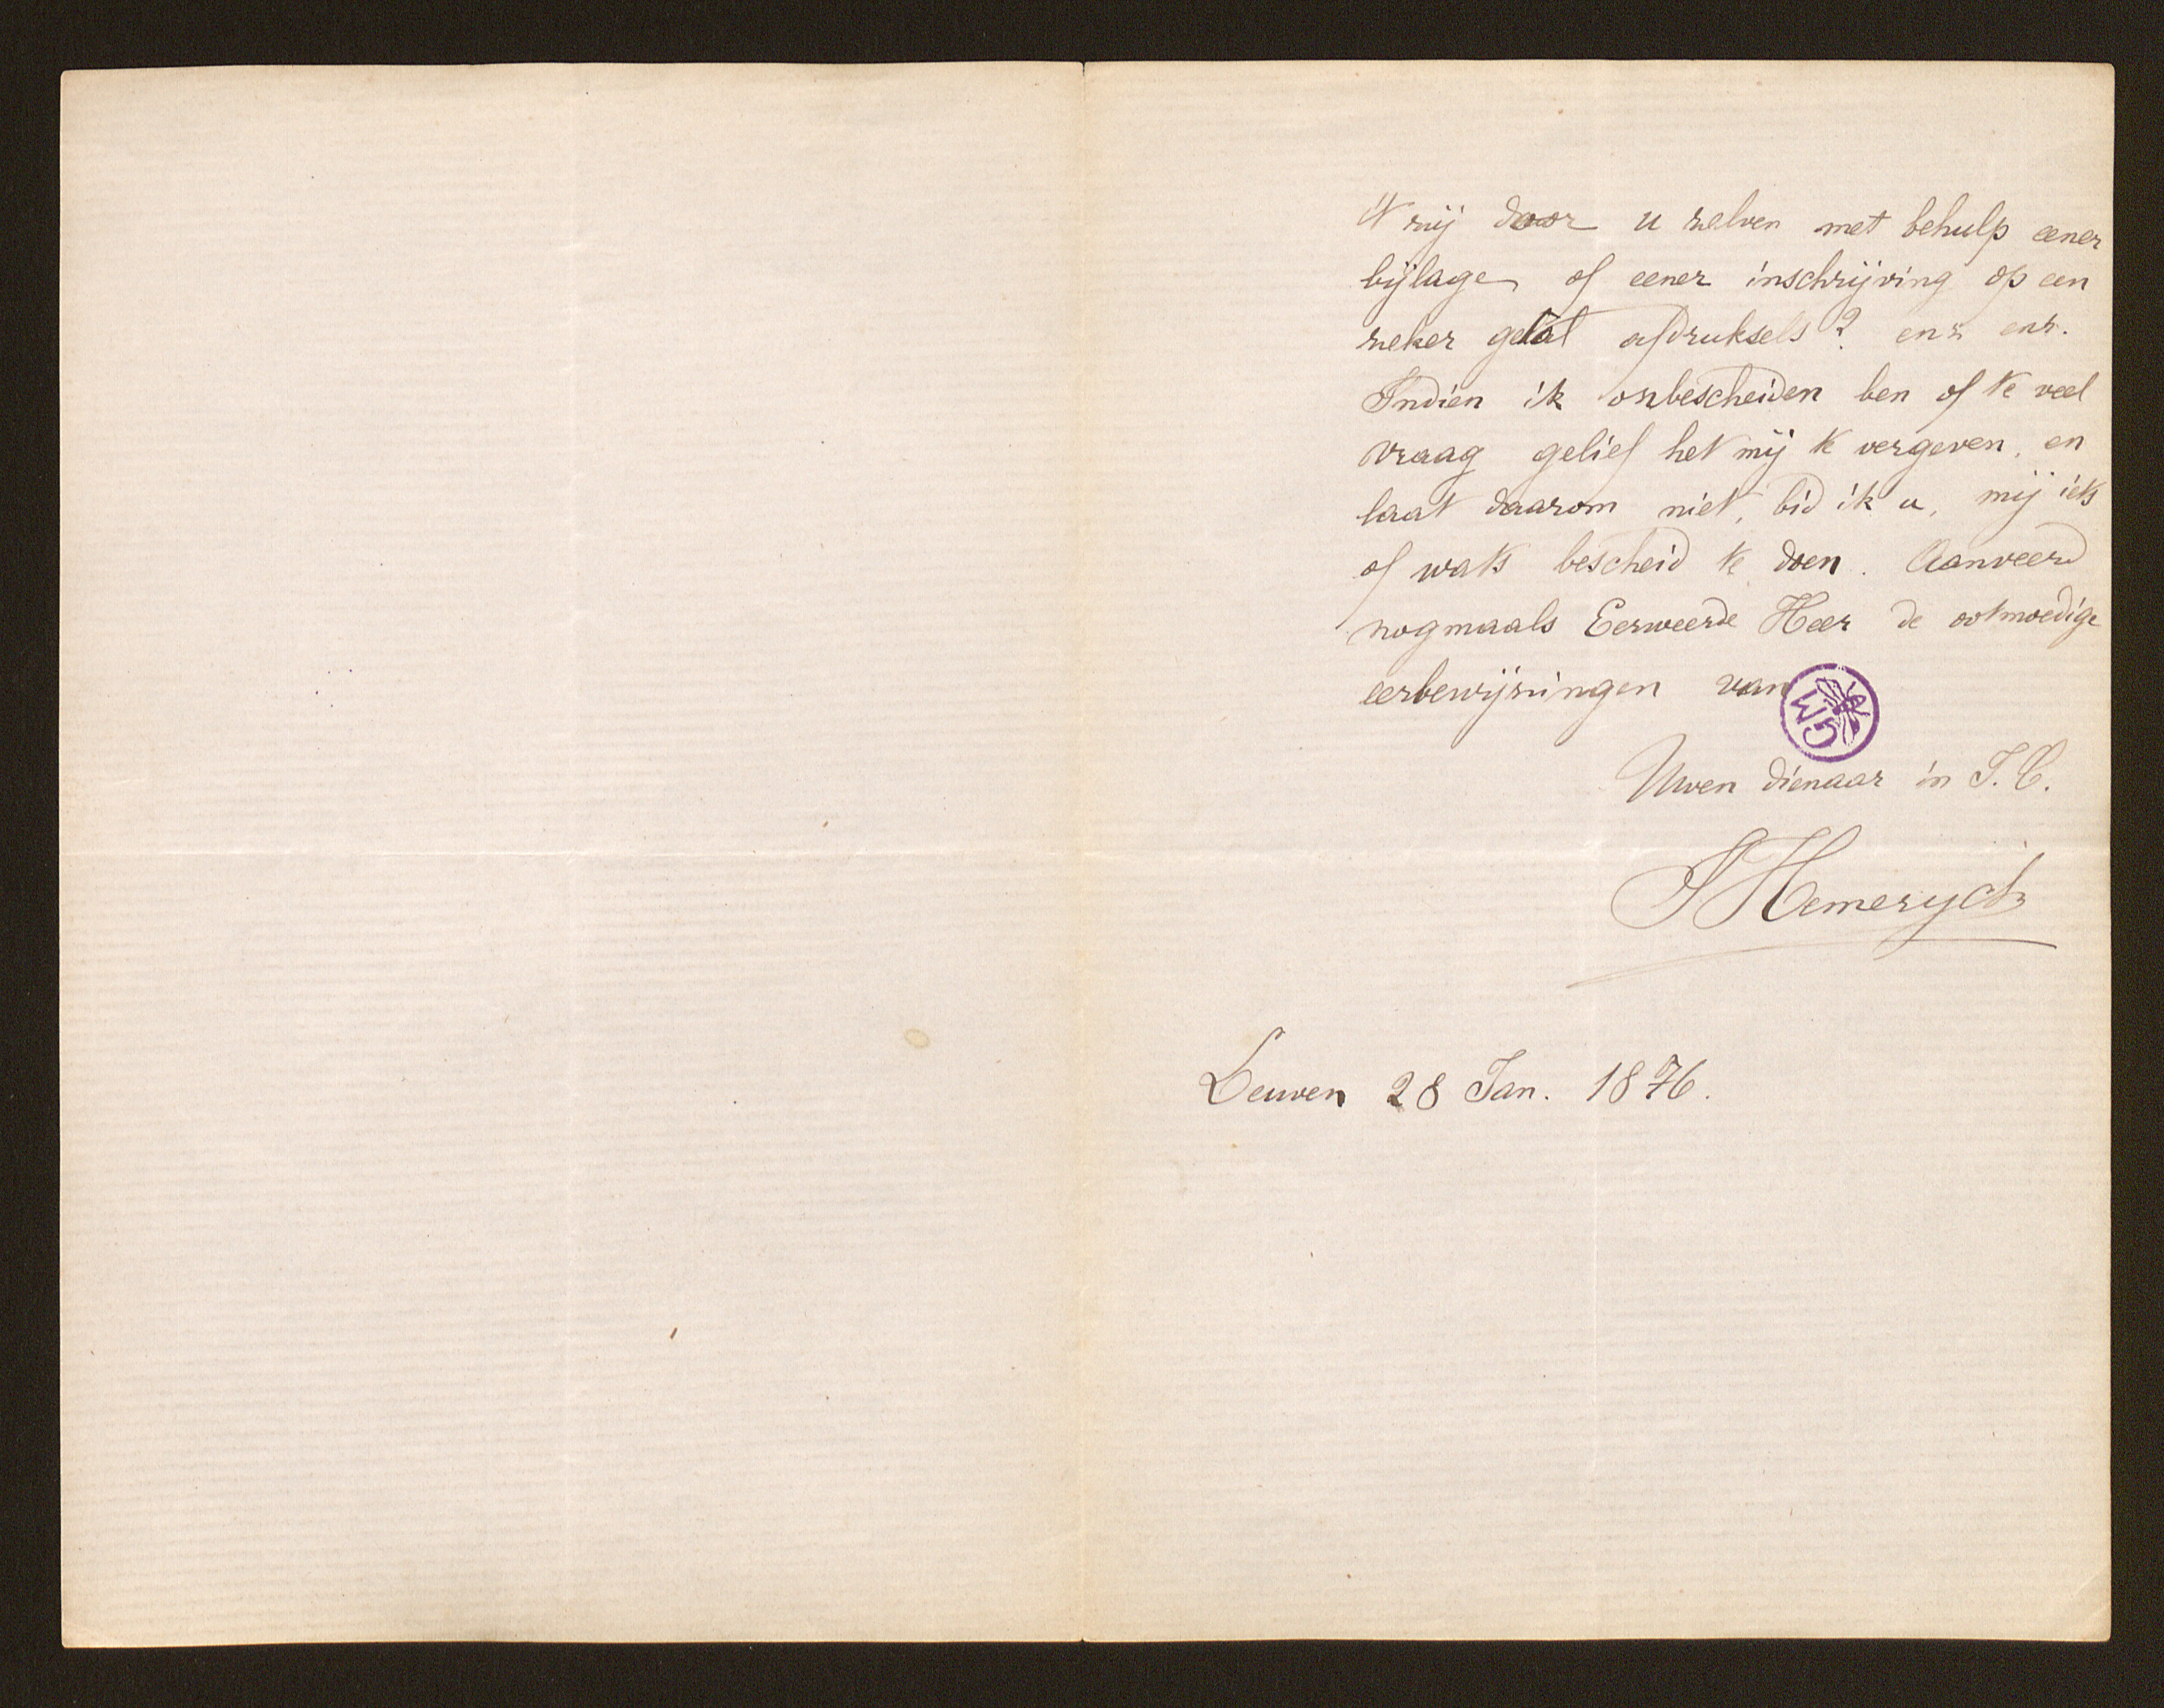 't zij door u zelven met behulp eener
bijlage of eener inschrijving op een
zeker getal afdruksels? enz enz.
Indien ik onbescheiden ben of te veel
vraag gelief het mij te vergeven, en
laat daarom niet, bid ik u, mij iets
of wats bescheid te doen. Aanveerd
nogmaals Eerweerde Heer de ootmoedige
eerbewijzingen van
GM
Uwen dienaar in J. C.
J Hemeryck
Leuven 28 Jan. 1876.